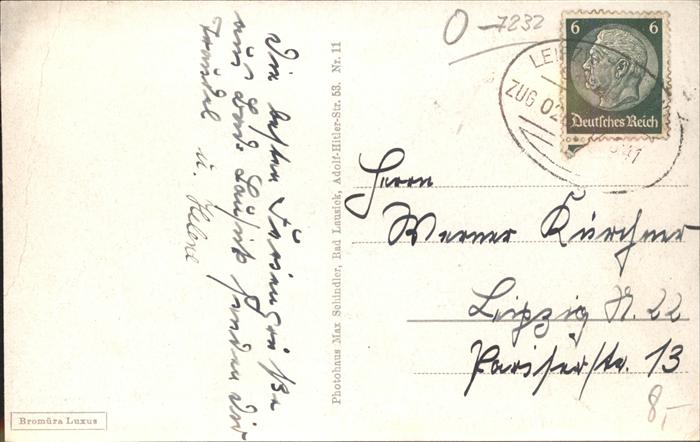 Die besten Feriengrüße
aus Bad Lausick senden Dir
Traudel u. Helene
Photohaus Max Schindler, Bad Lausick, Adolf-Hitler-Str. 53. Nr. 11
O-7232
6 6
Deutsches Reich
ZUG 02
41
Herrn
Werner Kürchner
Leipzig N. 22
Pariserstr. 13
8,-
Bromüra Luxus